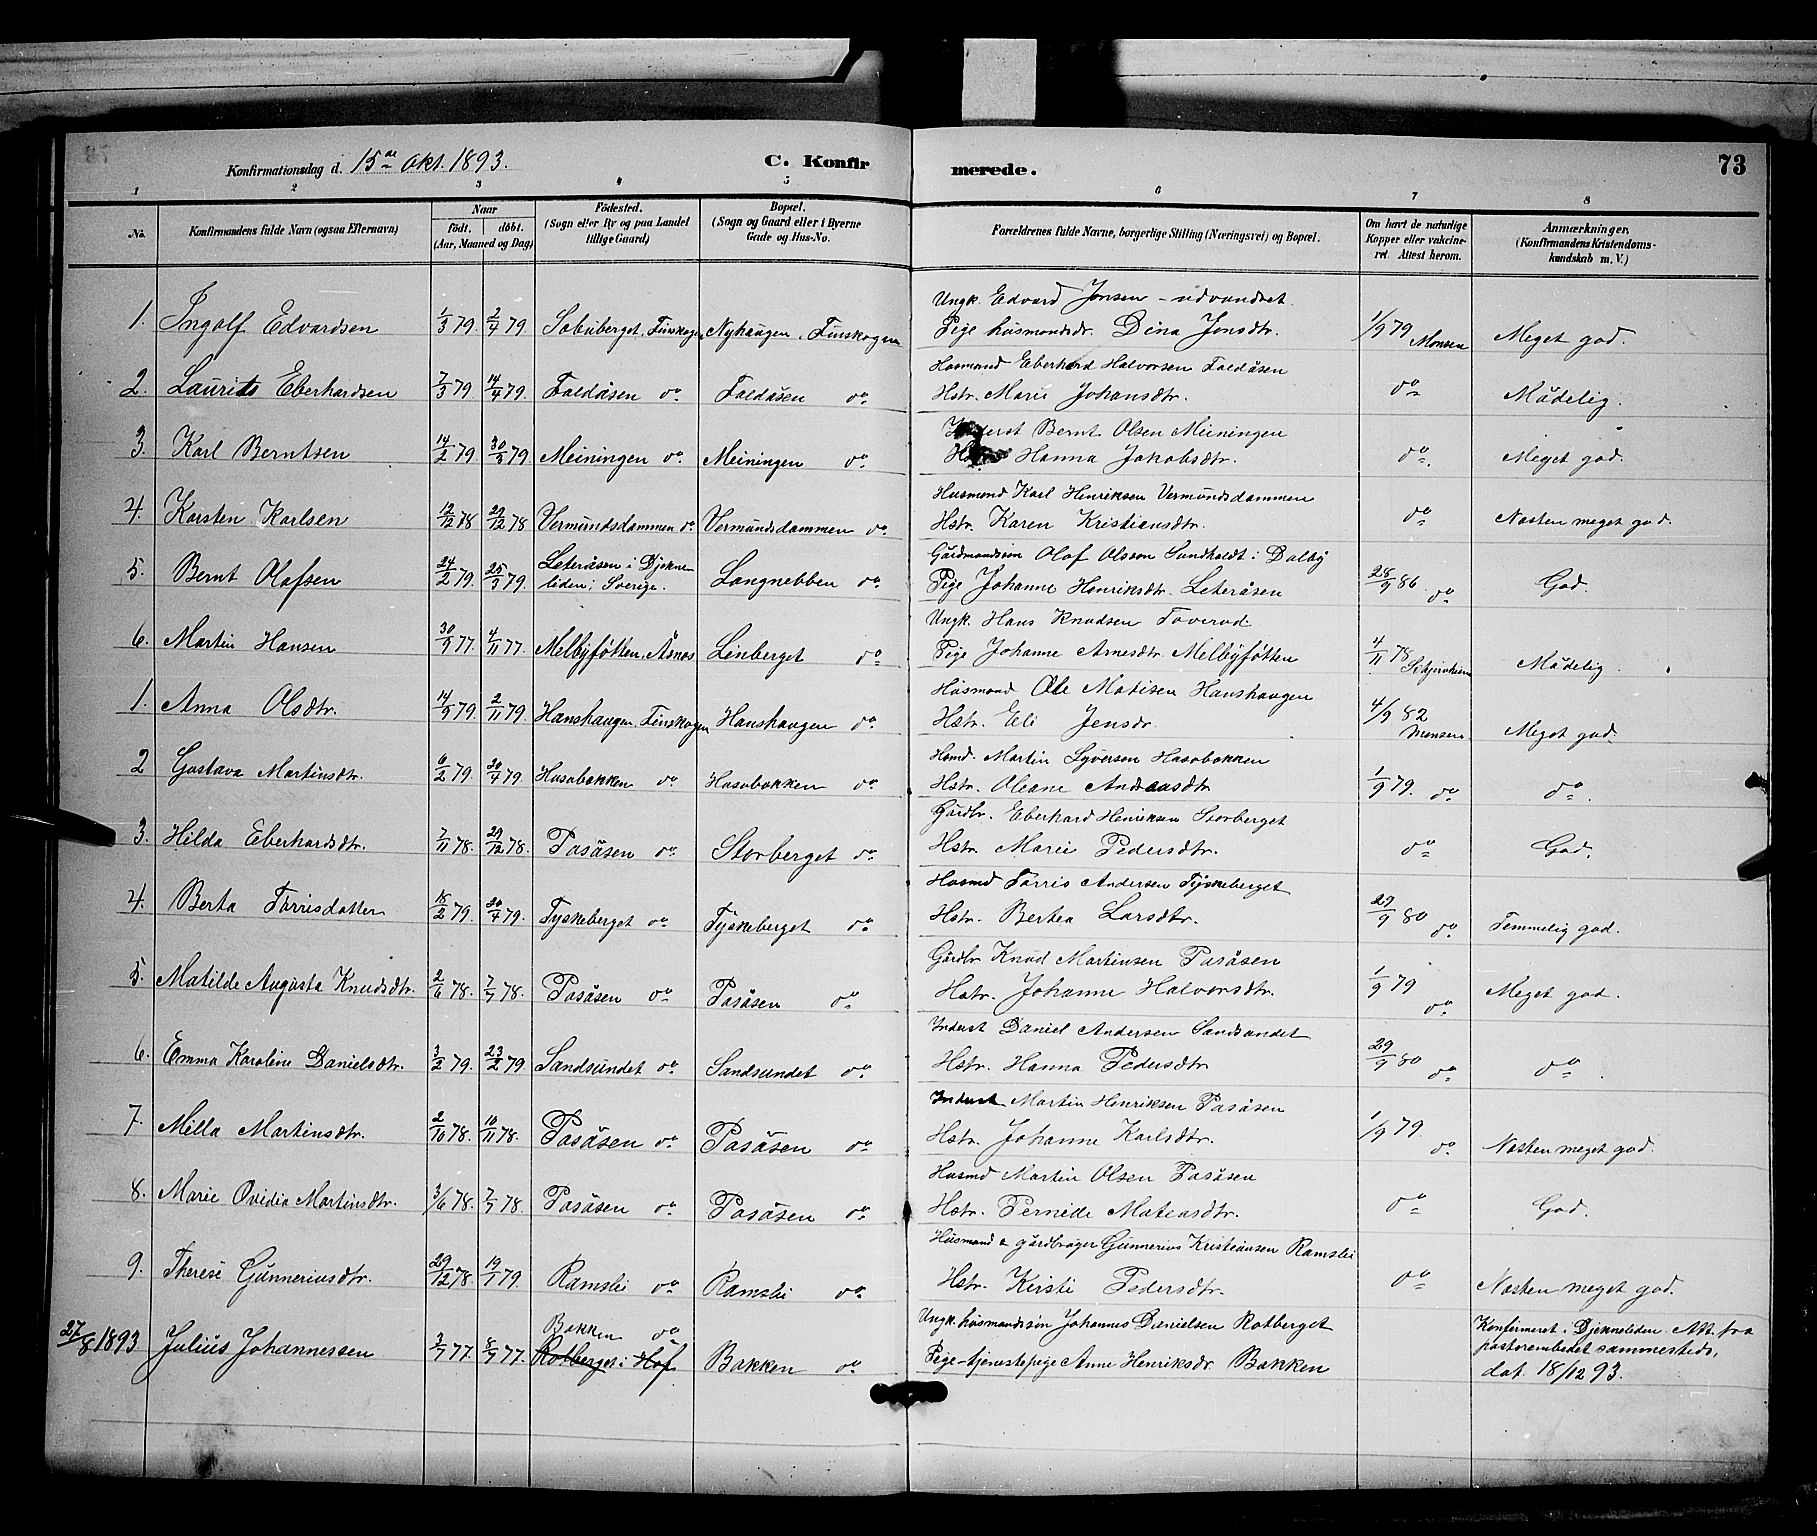 Konfirmationsdag d. 15de Okt. 1893. C. Konfirmerede. 73
1 2 3 4 5 6 7 8
No. Konfirmandens fulde Navn (ogsaa Efternavn) Naar født. døbt. (Aar, Maaned og Dag) Fødested. (Sogn eller By og paa Landet tillige Gaard) Bopæl. (Sogn og Gaard eller i Byerne Gade og Hus-No. Forældrenes fulde Navne, borgerlige Stilling (Næringsvei) og Bopæl. Om havt de naturlige Kopper eller vakcineret. Attest herom. Anmærkninger, (Konfirmandens Kristendomskundskab m. V.)
Ungk. Edvard Jonsen - udvandret.
1. Ingolf Edvardsen 1/3 79. 2/4 79 Sobuberget, Finskogen Nyhaugen, Finskogen Pige husmandsdr. Dina Jonsdtr. 1/9 79 Monsen Meget god.
Husmand Eberhard Halvorsen Faldåsen
2. Laurits Eberhardsen 7/3 79 14/4 79. Faldåsen do Faldåsen do Hstr. Marie Johansdtr. do Mådelig.
Inderst Bernt Olsen Meiningen
3. Karl Berntsen 14/2 79 30/3 79 Meiningen do Meiningen do Hanna Jakobsdtr. do Meget god.
Husmand Karl Henriksen Vermundsdammen
4. Karsten Karlsen 12/12 78 29/12 78 Vermundsdammen do Vermundsdammen do Hstr. Karen Kristiansdtr. do Næsten meget god.
Gårdmandssøn Olof Olsson Sundholdt i Dalby
5. Bernt Olofsen 24/2 79. 25/3 79. Leteråsen i Djekneliden i Sverige. Langnebben do Pige Johanne Henriksdtr. Leteråsen 28/9 86 do God.
Ungk. Hans Knudsen Toverud.
6. Martin Hansen 30/9 77 4/11 77. Melbyføtten, Åsnes Linberget do Pige Johanne Arnesdtr. Melbyføtten 4/11 78 Mådelig.
Husmand Ole Matisen Hanshaugen
1. Anna Olsdtr. 14/9 79. 2/11 79. Hanshaugen, Finskogen Hanshaugen do Hstr. Eli Jensdr. 4/9 82 Monsen Meget god.
Husmd. Martin Syversen Husobakken
2 Gustava Martinsdtr. 6/2 79. 20/4 79. Husobakken do Husobakken do Hstr. Oleane Andreasdtr 1/9 79. do do.
Gårdbr. Eberhard Henriksen Storberget
3. Hilda Eberhardsdtr. 7/11 78. 29/12 78. Påsåsen do Storberget do Hstr. Marie Pedersdtr. do God.
Husmd Tørris Andersen Tyskeberget
4. Berta Tørrisdatter 18/2 79. 20/4 79. Tyskeberget do Tyskeberget do Hstr. Bertea Larsdtr. 29/9 80 do Temmelig god.
Gårdbr Knud Martinsen Påsåsen
5. Matilde Augusta Knudsdtr. 2/6 78. 7/7 78. Påsåsen do Påsåsen do Hstr. Johanne Halvorsdtr. 1/9 79 do Meget god.
Inderst Daniel Andersen Sandsundet
6. Emma Karoline Danielsdtr. 3/2 79. 23/2 79 Sandsundet do Sandsundet do Hstr. Hanna Pedersdtr 29/9 80 do do.
Inderst Martin Henriksen Påsåsen
7. Milla Martinsdtr. 2/10 78. 10/11 78. Påsåsen do Påsåsen do Hstr. Johanne Karlsdtr. 1/9 79. do Næsten meget god.
Husmd Martin Olsen Påsåsen
8. Marie Ovidia Martinsdtr. 3/6 78. 7/7 78. Påsåsen do Påsåsen do Hstr. Pernelle Mateasdtr. do God.
Husmand & gårdbruger Gunnerius Kristiansen Ramsli
9. Therese Gunneriusdtr. 29/12 78. 19/1 79. Ramsli do Ramsli do Hstr. Kirsti Pedersdtr. do Næsten meget god.
Bakken do Ungk. husmandssøn Johannes Danielsen Rotberget Konfirmeret i Djekneliden. Att. fra
27/8 1893 Julius Johannessen 3/7 77. 8/7 77. Rotberget i Hof Bakken do Pige - tjenestepige Anne Henriksdr. Bakken pastorembedet sammesteds,
dat. 18/12 93.